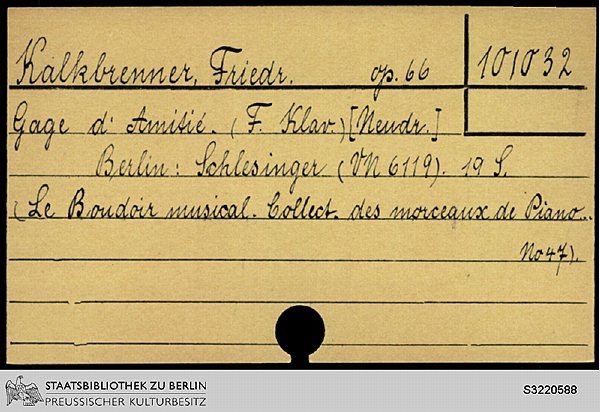 Kalkbrenner, Friedr. op. 66 101032
Gage d'Amitié. (F. Klav.) [Neudr.]
Berlin: Schlesinger (VN 6119). 19 S.
(Le Boudoir musical. Collect. des morceaux de Piano..
No 47).
STAATSBIBLIOTHEK ZU BERLIN
PREUSSISCHER KULTURBESITZ
S3220588